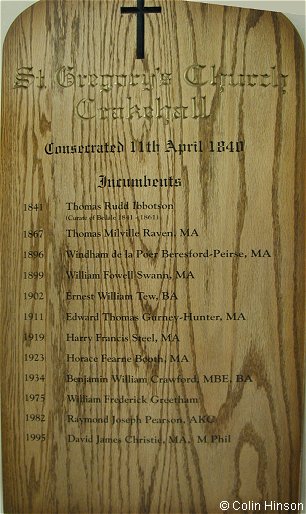 St Gregory's Church
Crakehall
Consecrated 11th April 1840
Incumbents
1841 Thomas Rudd Ibbotson
(Curate of Bedale 1841 - 1861)
1867 Thomas Milville Raven, MA
1896 Windham de la Poer Beresford-Peirse, MA
1899 William Fowell Swann, MA
1902 Ernest William Tew, BA
1911 Edward Thomas Gurney-Hunter, MA
1919 Harry Francis Steel, MA
1923 Horace Fearne Booth, MA
1934 Benjamin William Crawford, MBE, BA
1975 William Frederick Greetham
1982 Raymond Joseph Pearson, AKC
1995 David James Christie, MA, M Phil
© Colin Hinson